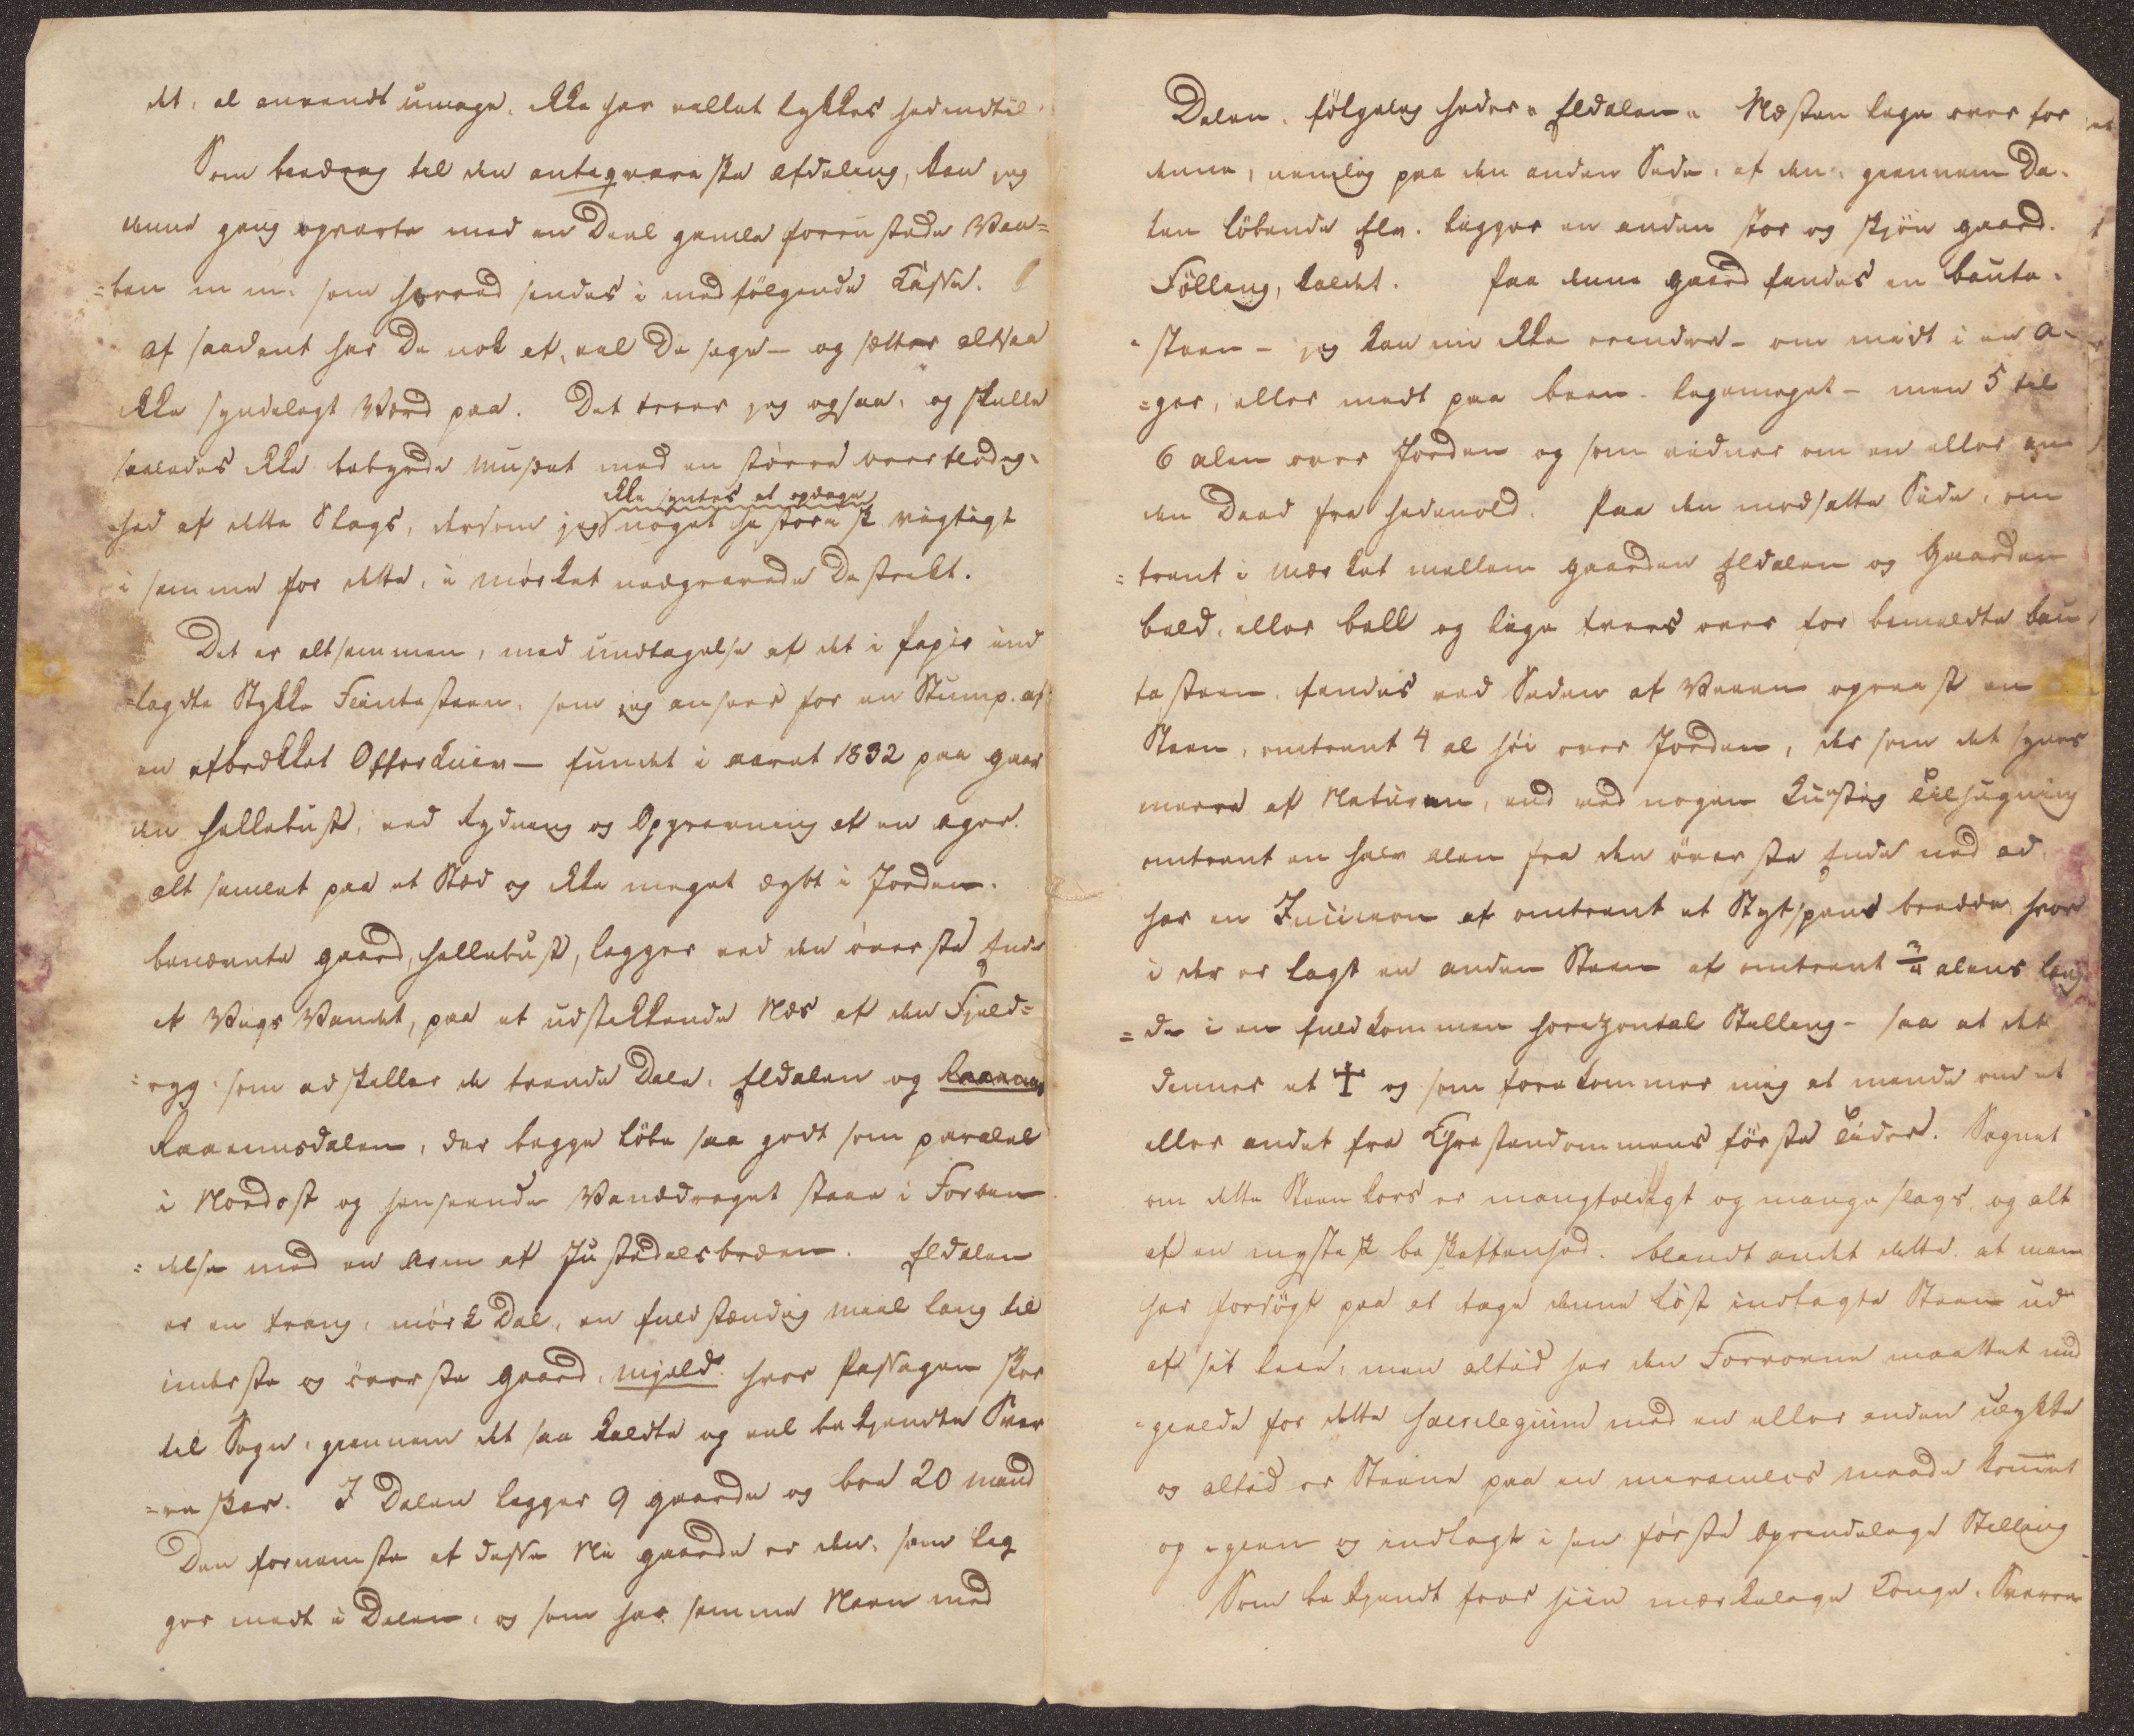 det, al anvendt umage, ikke har vellet lykkes hedindtil.
Som beedrag til den anteqvareske afdeling, kan jeg
denne gang opvarte med en Deel gamle forrustede Vaa=
=ben m m. som herved sendes i medfölgende Kasse.
af saadant har De nok af, vel De sege – og sætter altsaa
ikke synderlegt Værd paa. Det troer jeg ogsaa, og skulle
saaledes ikke bebyrde museet med en större overflödeg-
hed af dette Slags, dersom jeg noget hestoresk vigtigt
ikke syntes at opdage
i samme for dette, i mörket nedgravede Destrekt.
Det er altsammen, med undtagelse af det i Papir ind
=lagdte Stykke Flintesteen, som jeg anseer for en Stump af
en afbrækket Offerkniv – fundet i aaret 1832 paa gaar
den Hellebust, ved Rydning og Opgravning af en ager.
alt samlet paa et Sted og ikke meget dybt i Jorden.
benævnte gaard, Hellebust, legger ved den överste Ende
af Vegs Vandet, paa et udstikkende Næs af den Fjeld=
=ryg som adskeller de tvende Dale, Eldalen og
Raaemsdalen, der begge löbe saa godt som paralel
i Nordost og henseende Vanddraget staae i Forben
=delse med en Arm af Justedalsbræen. Eldalen
er en trang, mörk Dal, en fuldstændig miil lang til
inderste og överste gaard, mjeld, hvor Passagen skeer
til Sogn, giennem det saa kaldte og vel bekjendte Sver
=reskar. I Dalen legger 9 gaarde og boe 20 mænd
Den fornemste af desse Ni gaarde er den, som leg
ger medt i Dalen, og som har samme Navn med
Dalen, fölgeleg heder "Eldalen" Næsten lege over for
denne, nemlig paa den anden Sede, af den, giennem Da-
len löbende Elv, legger en anden stor og skjön gaard.
Följling, kaldet. Paa denne gaard findes en bauta-
=steen – jeg kan nu ikke erendre – om midt i en a-
=ger, eller medt paa been – legemeget – men 5 til
6 alen over Jorden og som vidner om en eller an
den Daad fra Hedenold. Paa den modsatte Side, om
=trent i mærket mellem gaarden Eldalen og Gaarden
bald, eller ball og lige tvers over for bemeldte bau
testeen, findes ved Seden af Veien opreest en
Steen, omtrent 4 al höi over Jorden, der som det synes
meere af Naturen, end ved nogen kunstig Tilhugning
omtrent en halv alen fra den överste Ende ned ad,
har en Incision af omtrent et Stytspans bredde, hvor
i der er lagt en anden Steen af omtrent 3/4 alens læng
=de i en fuldkommen horezontal Stelling – saa at det
danner et ☩ og som forekommer mig at meende om et
eller andet fra Chrestendommens förste Tider. Sagnet
om dette Steenkors er mangfoldigt og mange slags, og alt
af en mystesk beskaffenhed. blandt andet dette, at man
har forsögt paa at tage denne löst indlagte Steen ud
af sit Leie, men altid har den Forvovne maattet und
=gielde for dette sacrilegium med en eller anden ulykke
og altid er Stenen paa en miraculös maade kommet
op igien og indlagt i sin förste oprendelege Stelling
Som bekjendt foor hiin mærkelege Konge, Sverre